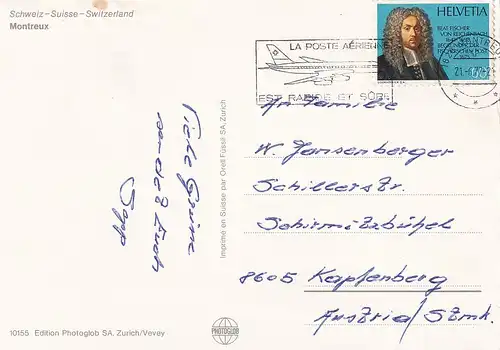 Schweiz-Suisse-Switzerland
Montreux
HELVETIA
BEAT FISCHER
VON REICHENBACH
BEGRÜNDER DER
FISCHERSCHEN POST
LA POSTE AÉRIENNE
EST RAPIDE ET SÛRE
An Familie
W. Jansenberger
Schillerstr.
Schirmitzbühel
8605 Kapfenberg
Austria/Stmk.
Viele Grüsse
Sepp
Imprimé en Suisse par Orell Füssli SA, Zurich
10155 Edition Photoglob SA, Zurich/Vevey
PHOTOGLOB